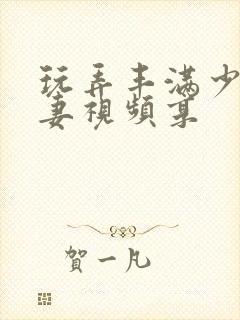 玩弄丰满少
妻視頻菓
賀一凡